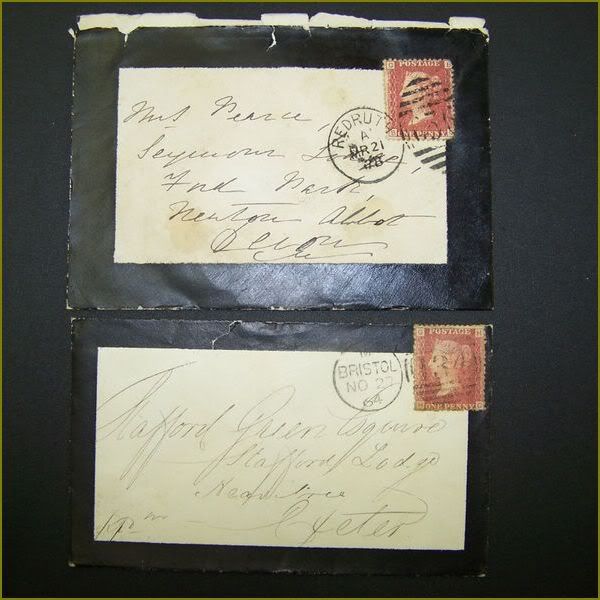 POSTAGE
ONE PENNY
REDRUTH
A
MR 21
78
Mrs Pearce,
Seymour
Ford Park,
Newton Abbot
Devon
POSTAGE
ONE PENNY
BRISTOL
NO 27
64
Stafford Green Esquire
Stafford Lodge
Heavitree
Exeter